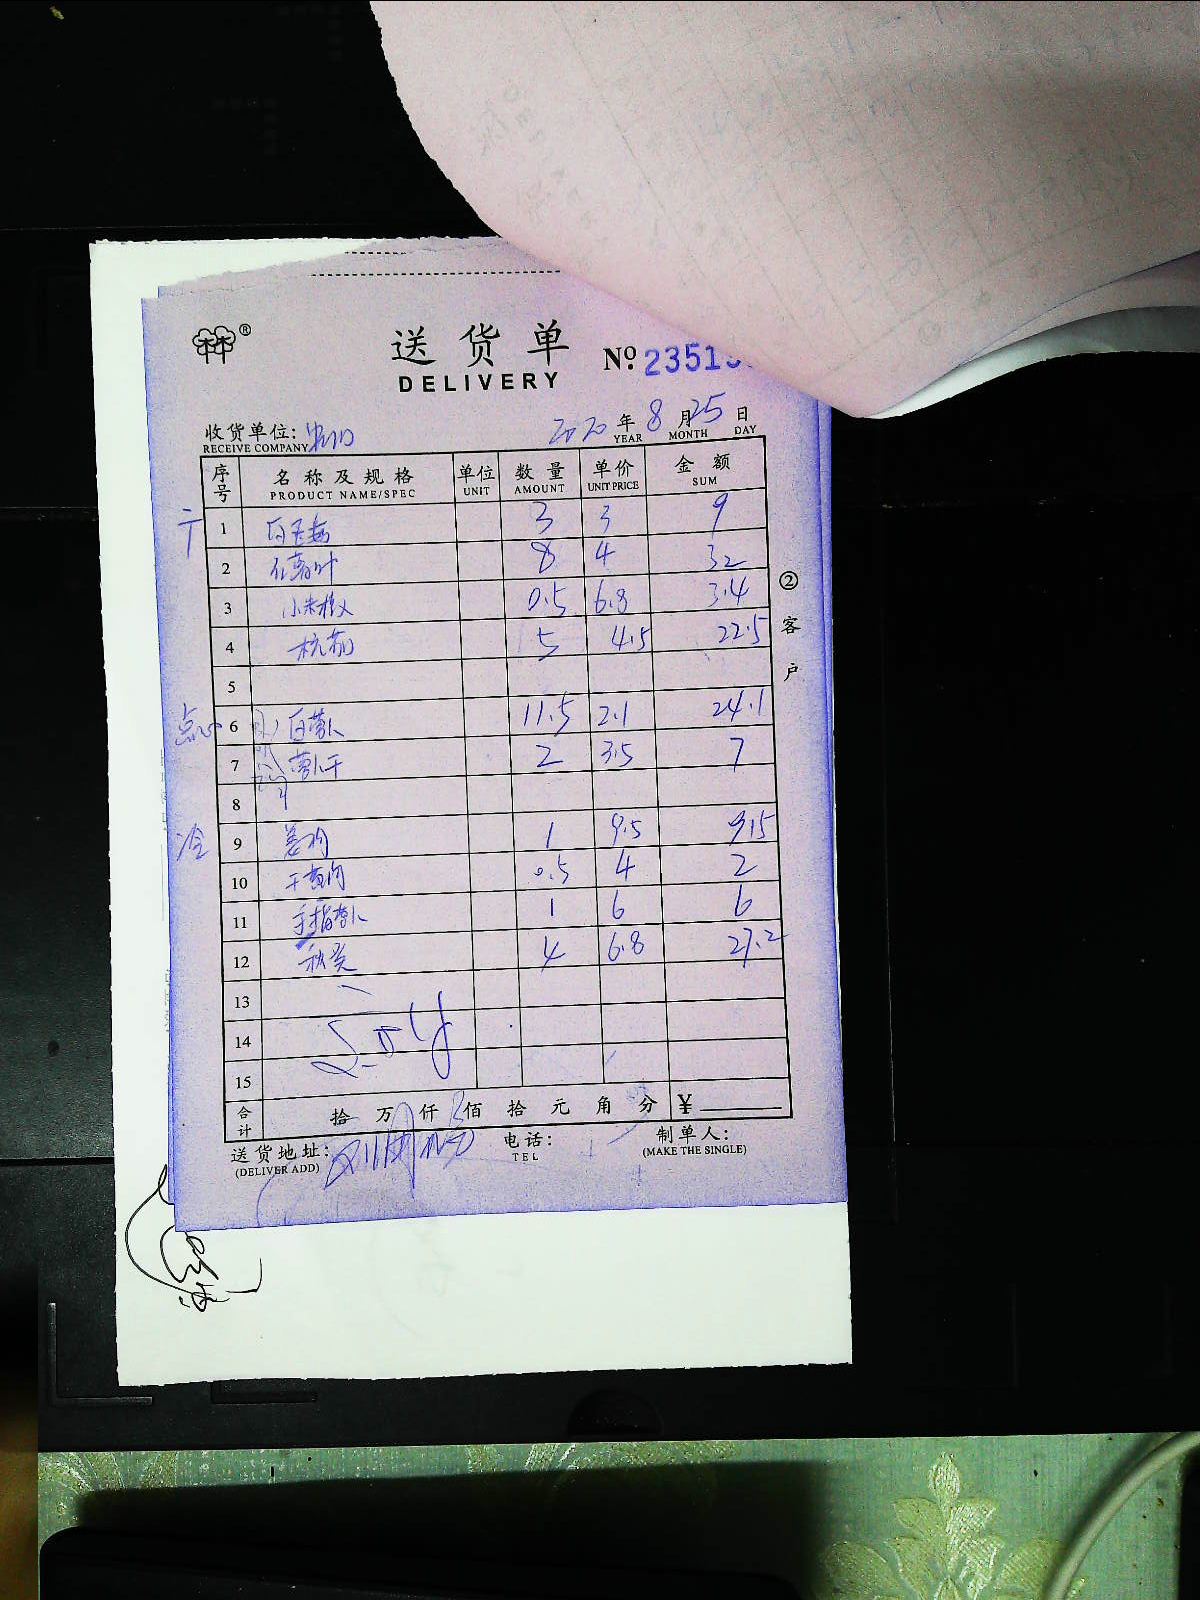 ®
送货单
DELIVERY
№ 2351
收货单位:
RECEIVE COMPANY
2020 年 8 月 25 日
YEAR MONTH DAY
序号 名称及规格 单位 数量 单价 金额
PRODUCT NAME/SPEC UNIT AMOUNT UNIT PRICE SUM
1 白玉菇 3 3 9
2 8 4 32
3 小米椒 0.5 6.8 3.4
4 杭茄 5 4.5 22.5
5
点心 6 白萝卜 11.5 2.1 24.1
7 萝卜干 2 3.5 7
8
冷 9 1 9.5 9.5
10 干黄肉 0.5 4 2
11 手指萝卜 1 6 6
12 秋葵 4 6.8 27.2
13
14
15
合计 拾 万 仟 佰 拾 元 角 分 ¥
送货地址: 电话: 制单人:
(DELIVER ADD) TEL (MAKE THE SINGLE)
② 客户